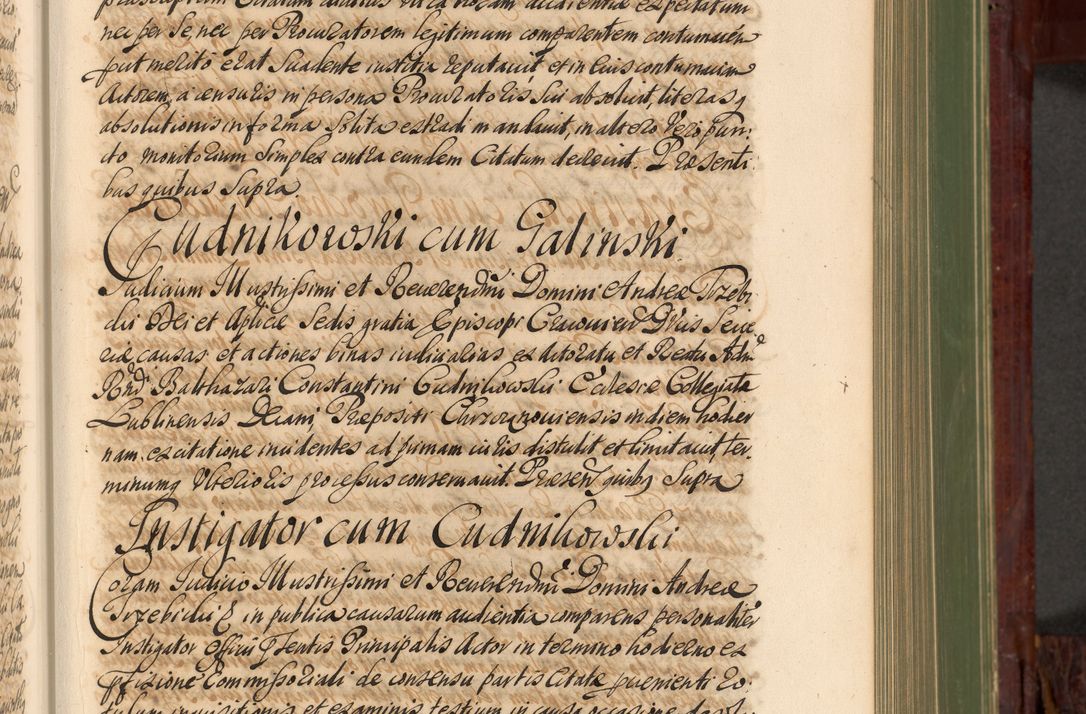 nec per Se, nec per Procuratorem legitimum comparentem contumacem
put merito erat Suadente iustitia reputauit, et in Eius contumaciam
Actorem, a censuris in persona Procuratoris Sui absoluit, literasq
absolutionis in forma Solita extradi mandauit, in altero Vero pun
cto monitorium Simplex contra eundem Citatum decreuit. Praesenti
bus quibus Supra
Cudnikowski cum Galinski
Judicium Illustrissimi et Reuerendmi Domini Andreae Trzebi
cki Dei et Aplicae Sedis gratia Episcopi Cracouien Ducis Seue
riae causas et actiones binas iudicialias ex actoratu et Reatu Adm
Rndi Balthazari Constantini Cudnikowski Ecclesiae Collegiatae
Lublinensis Decani, Praepositi Chrzanouiensis in diem hodier
nam ex citatione incidentes ad primam iuris distulit et limitauit, ter
minumq Vlterioris processus conseruauit. Praesen quibq Supra
Instigator cum Cudnikowski
Coram Iudicio Illustrissimi et Reuerendmi Domini Andreae
Trzebicki & in publica causarum audientia comparens personaliter
Instigator Officii Psentis Principalis Actor in termino hodierno ex
commissoriali de consensu partis Citatae
inquisitionis et examinis testium in causa occasione